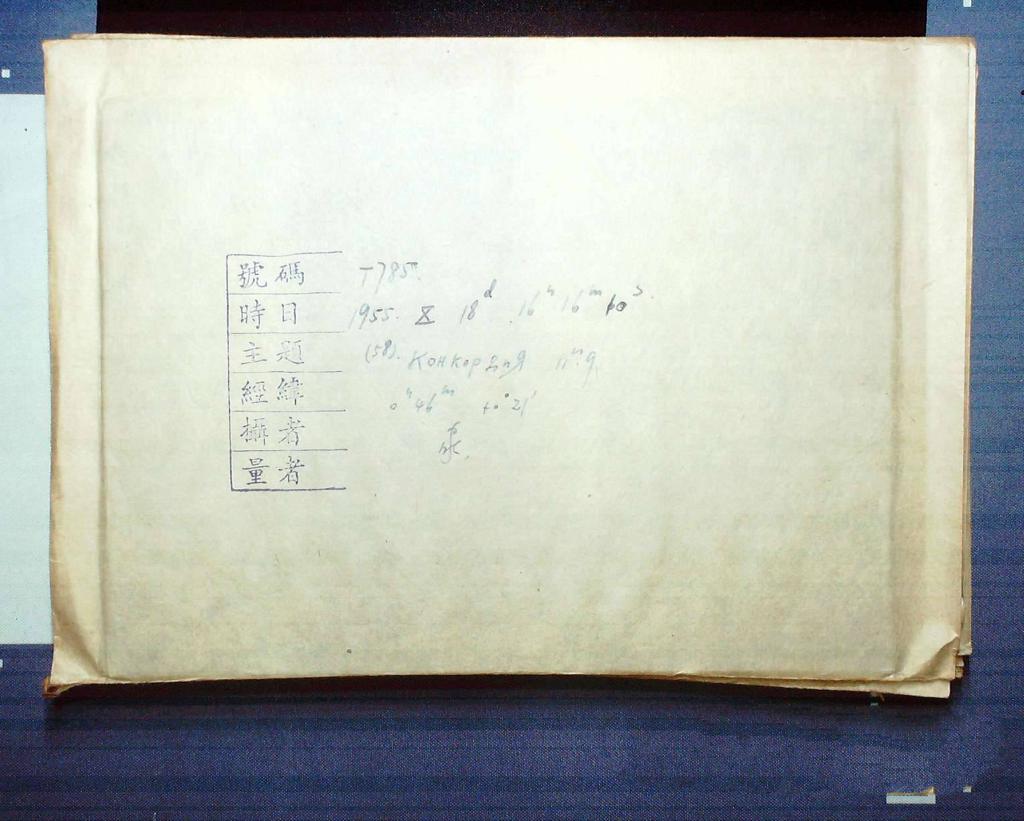 號碼 T785.
時日 1955. X 18ᵈ. 16ʰ 16ᵐ
主題 (58). Конкордия 11ᵐ.9
經緯 0ʰ46ᵐ +0°21'
攝者
量者